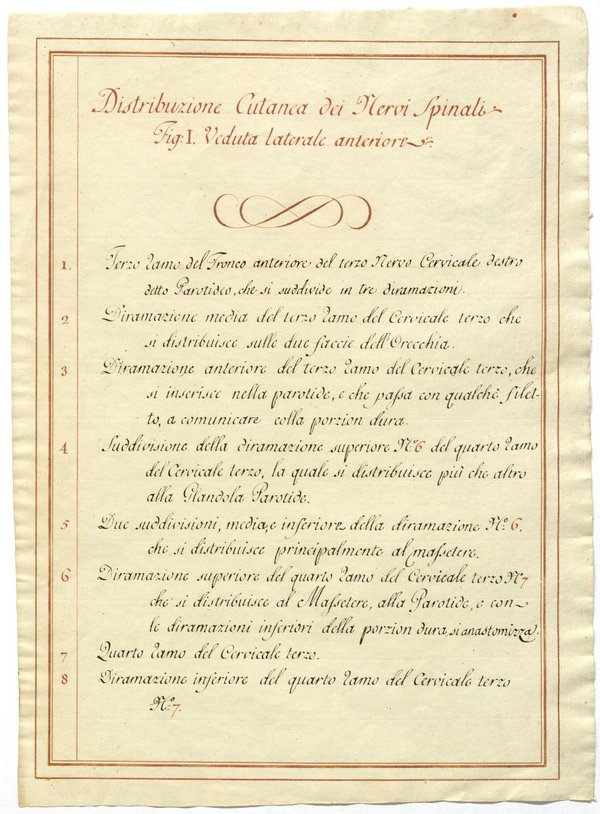 Distribuzione Cutanea dei Nervi Spinali
Fig: I. Veduta laterale anteriore.
1. Terzo ramo del Tronco anteriore del terzo Nervo Cervicale destro
detto Parotideo, che si suddivide in tre diramazioni.
2 Diramazione media del terzo ramo del Cervicale terzo che
si distribuisce sulle due faccie dell'Orecchia.
3 Diramazione anteriore del terzo ramo del Cervicale terzo, che
si inserisce nella parotide, e che passa con qualchè filet-
to, a comunicare colla porzion dura.
4 Suddivisione della diramazione superiore Nº6 del quarto ramo
del Cervicale terzo, la quale si distribuisce più che altro
alla Glandola Parotide.
5 Due suddivisioni, media, e inferiore della diramazione Nº. 6.
che si distribuisce principalmente al massetere.
6 Diramazione superiore del quarto ramo del Cervicale terzo Nº7
che si distribuisce al Massetere, alla Parotide, e con-
le diramazioni inferiori della porzion dura, si anastomizza.
7 Quarto ramo del Cervicale terzo.
8 Diramazione inferiore del quarto ramo del Cervicale terzo
Nº.7.